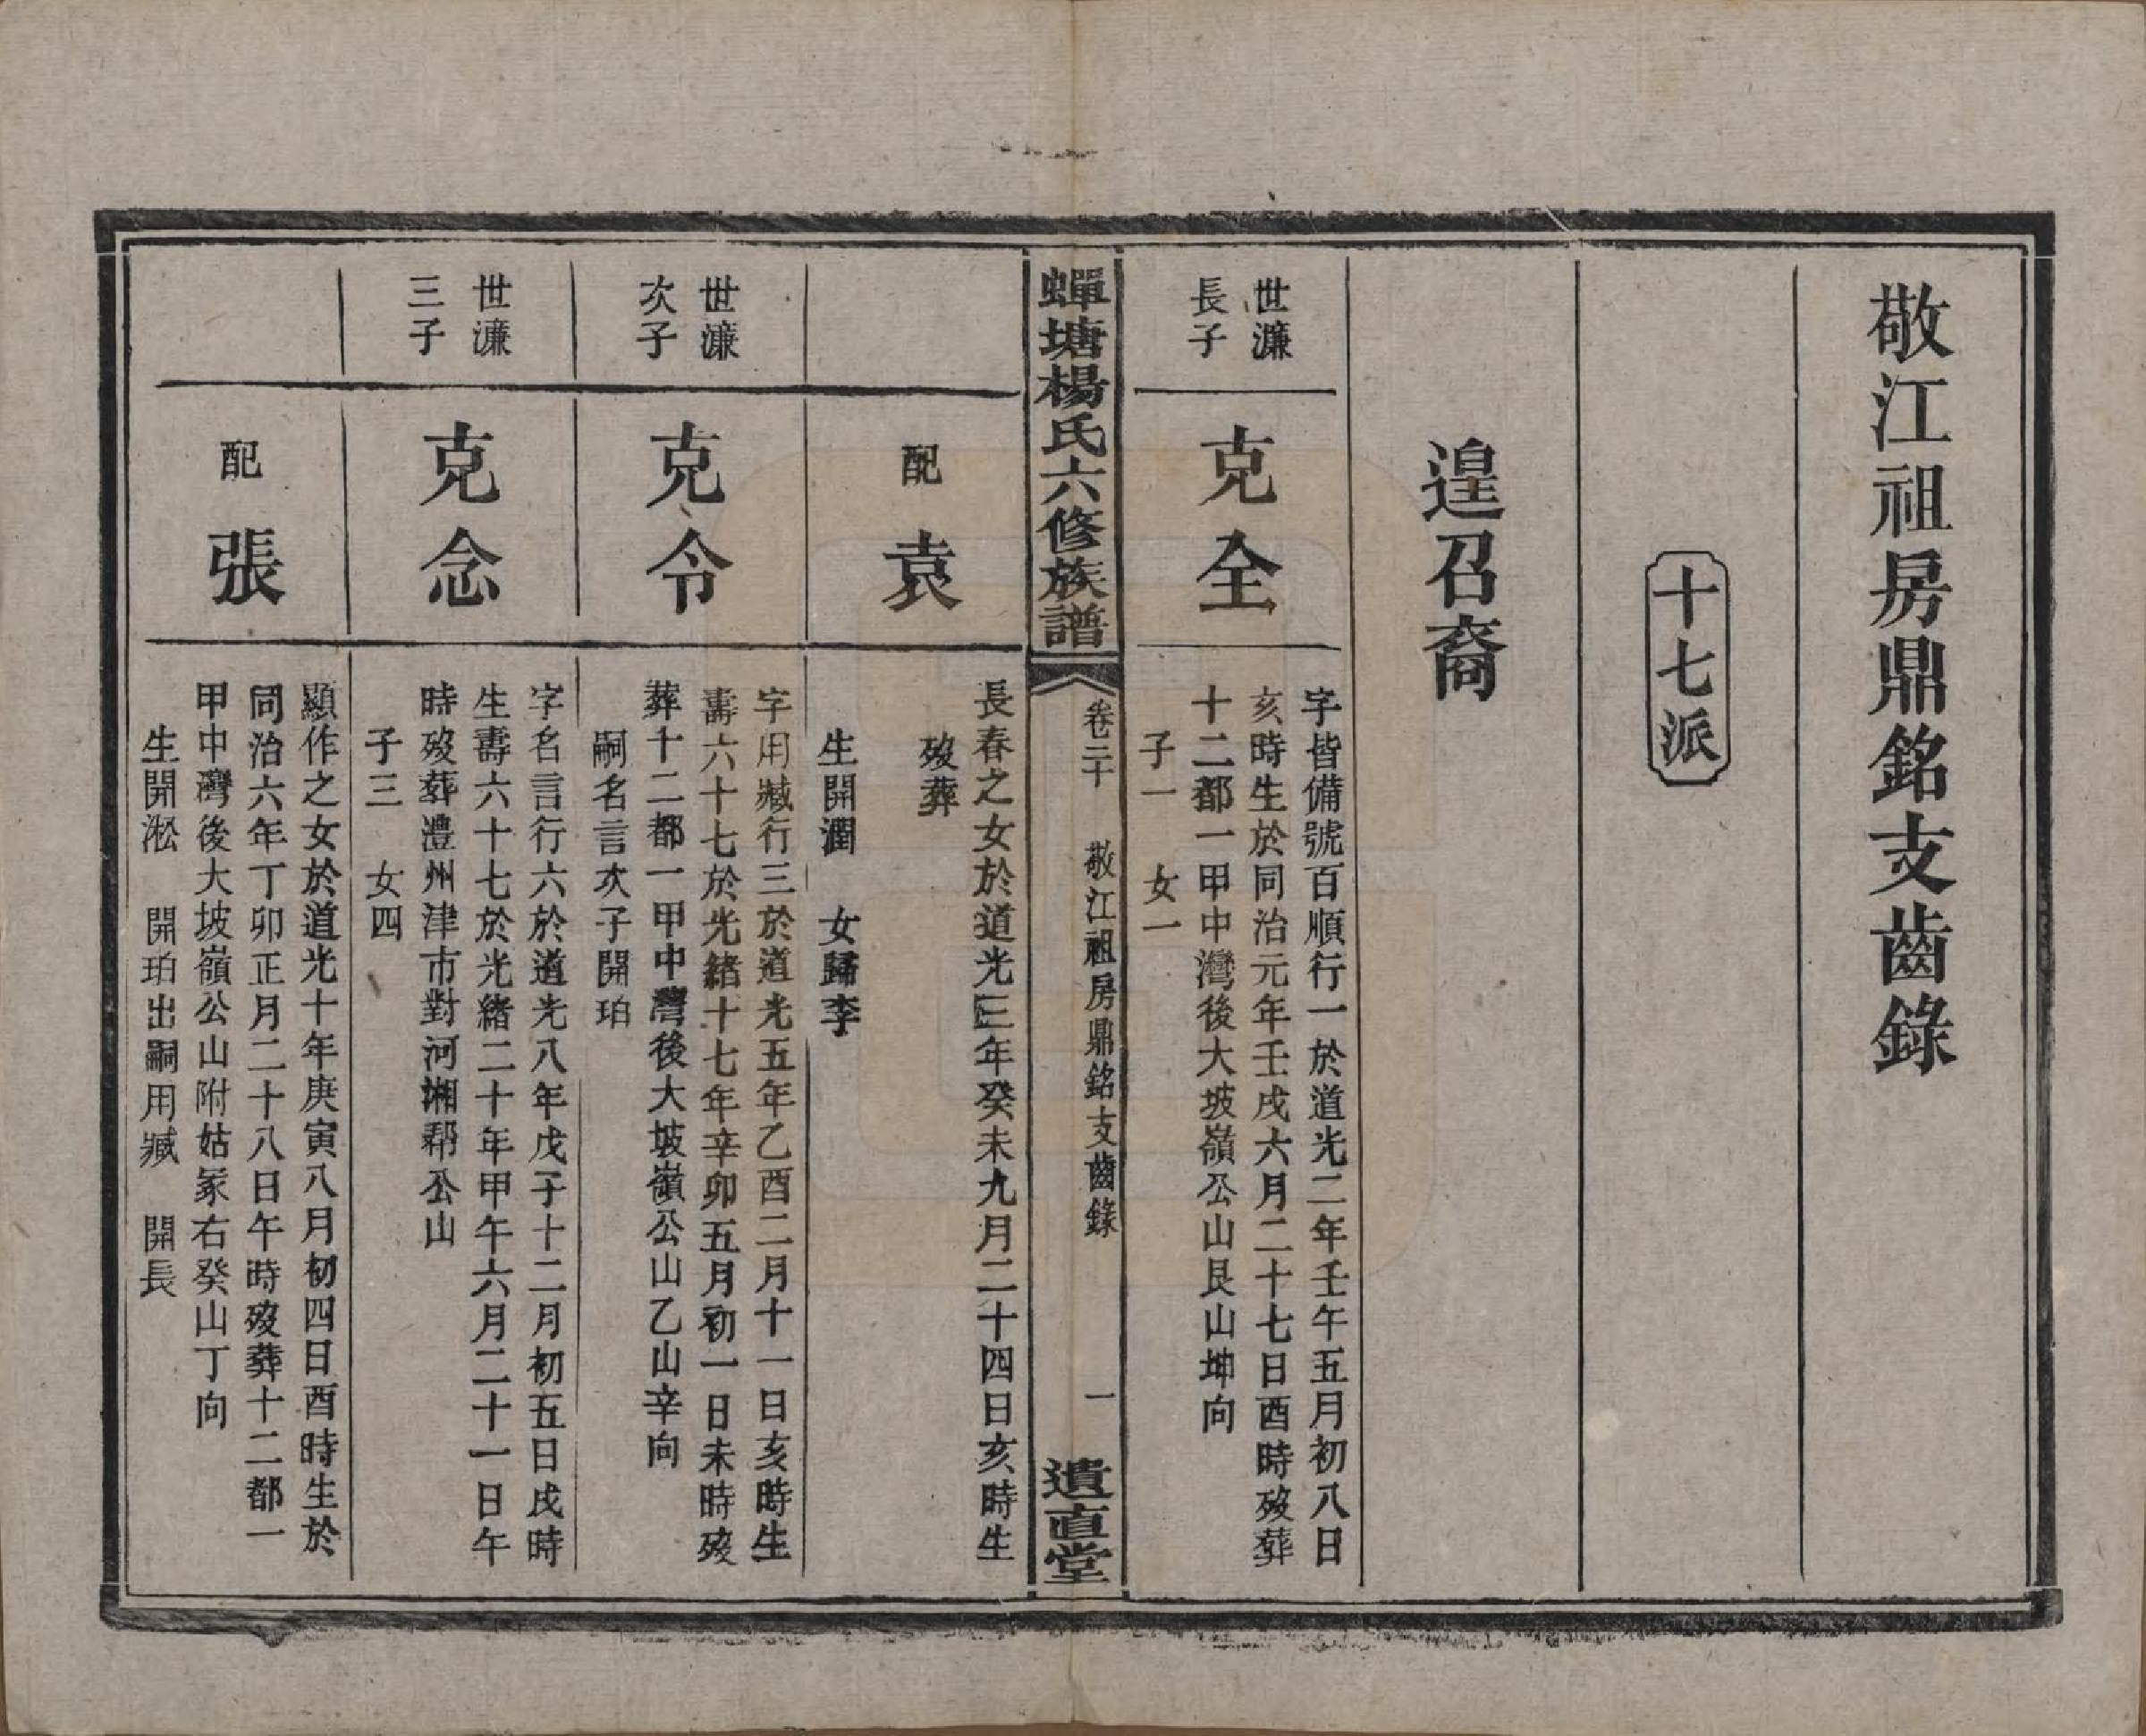 敬江祖房鼎銘支齒錄
十七派
遑召裔
世濂
長子
克全
字皆備號百順行一於道光二年壬午五月初八日
亥時生於同治元年壬戌六月二十七日酉時歿葬
十二都一甲中灣後大坡嶺公山艮山坤向
子一 女一
蟬塘楊氏六修族譜
卷二十 敬江祖房鼎銘支齒錄 一
遺直堂
配袁
長春之女於道光三年癸未九月二十四日亥時生
歿葬
生開潤 女歸李
世濂
次子
克令
字用臧行三於道光五年乙酉二月十一日亥時生
壽六十七於光緒十七年辛卯五月初一日未時歿
葬十二都一甲中灣後大坡嶺公山乙山辛向
嗣名言次子開珀
世濂
三子
克念
字名言行六於道光八年戊子十二月初五日戌時
生壽六十七於光緒二十年甲午六月二十一日午
時歿葬澧州津市對河湘鄀公山
子三 女四
配張
顯作之女於道光十年庚寅八月初四日酉時生於
同治六年丁卯正月二十八日午時歿葬十二都一
甲中灣後大坡嶺公山附姑冢右癸山丁向
生開淞 開珀出嗣用臧 開長